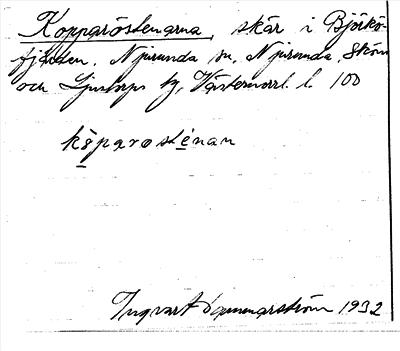 Kopparöstenarna, skär i Björkö-
fjärden. Njurunda sn, Njurunda, Sköns
och Ljustorps tg, Västernorrl. l. 100
köparosténan
Ingvart 1932